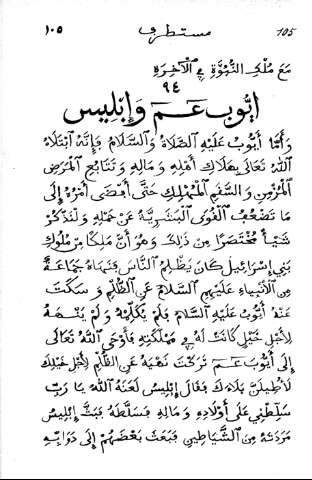 ١٠٥ مستطرف 105
مَعَ مُلْكِ النُّبُوَّةِ فِي الْآخِرَةِ
٩٤
أَيُّوب عـم وَإِبْلِيس
وَأَمَّا أَيُّوبُ عَلَيْهِ الصَّلَاةُ وَالسَّلَامُ فَإِنَّهُ ابْتَلَاهُ
اللّٰهُ تَعَالَى بِهَلَاكِ أَهْلِهِ وَمَالِهِ وَتَتَابُعِ الْمَرَضِ
الْمُزْمِنِ وَالسَّقَمِ الْمُهْلِكِ حَتَّى أَفْضَى أَمْرُهُ إِلَى
مَا تَضْعُفُ الْقُوَى الْبَشَرِيَّةُ عَنْ حَمْلِهِ وَلْنَذْكُرْ
شَيْأً مُخْتَصَرًا مِنْ ذٰلِكَ وَهُوَ أَنَّ مَلِكًا مِنْ مُلُوكِ
بَنِي إِسْرَائِيلَ كَانَ يَظْلِمُ النَّاسَ فَنَهَاهُ جَمَاعَةٌ
مِنَ الْأَنْبِيَاءِ عَلَيْهِمِ السَّلَامُ عَنِ الظُّلْمِ وَسَكَتَ
عَنْهُ أَيُّوبُ عَلَيْهِ السَّلَامُ فَلَمْ يُكَلِّمْهُ وَلَمْ يَنْهَهُ
لِأَجْلِ خَيْلٍ كَانَتْ لَهُ فِي مَمْلَكَتِهِ فَأَوْحَى اللّٰهُ تَعَالَى
إِلَى أَيُّوبَ عـم تَرَكْتَ نَهْيَهُ عَنِ الظُّلْمِ لِأَجْلِ خَيْلِكَ
لَأُطِيلَنَّ بَلَاءَكَ فَقَالَ إِبْلِيسُ لَعَنَهُ اللّٰهُ يَا رَبِّ
سَلِّطْنِي عَلَى أَوْلَادِهِ وَمَالِهِ فَسَلَّطَهُ فَبَثَّ إِبْلِيسُ
مَرَدَتَهُ مِنَ الشَّيَاطِينِ فَبَعَثَ بَعْضَهُمْ إِلَى دَوَابِّهِ